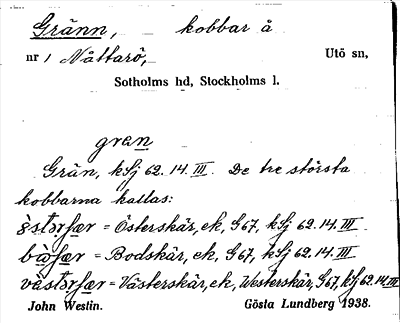 Gränn, kobbar å
nr 1 Nåttarö, Utö sn,
Sotholms hd, Stockholms l.
gran
Grän, kSj 62.14.III. De tre största
kobbarna kallas:
= Österskär, ek, G67, kSj 62.14.III
= Bodskär, ek, G67, kSj 62.14.III.
= Västerskär, ek, Westerskär, G67, kSj 62.14.III
John Westin. Gösta Lundberg 1938.